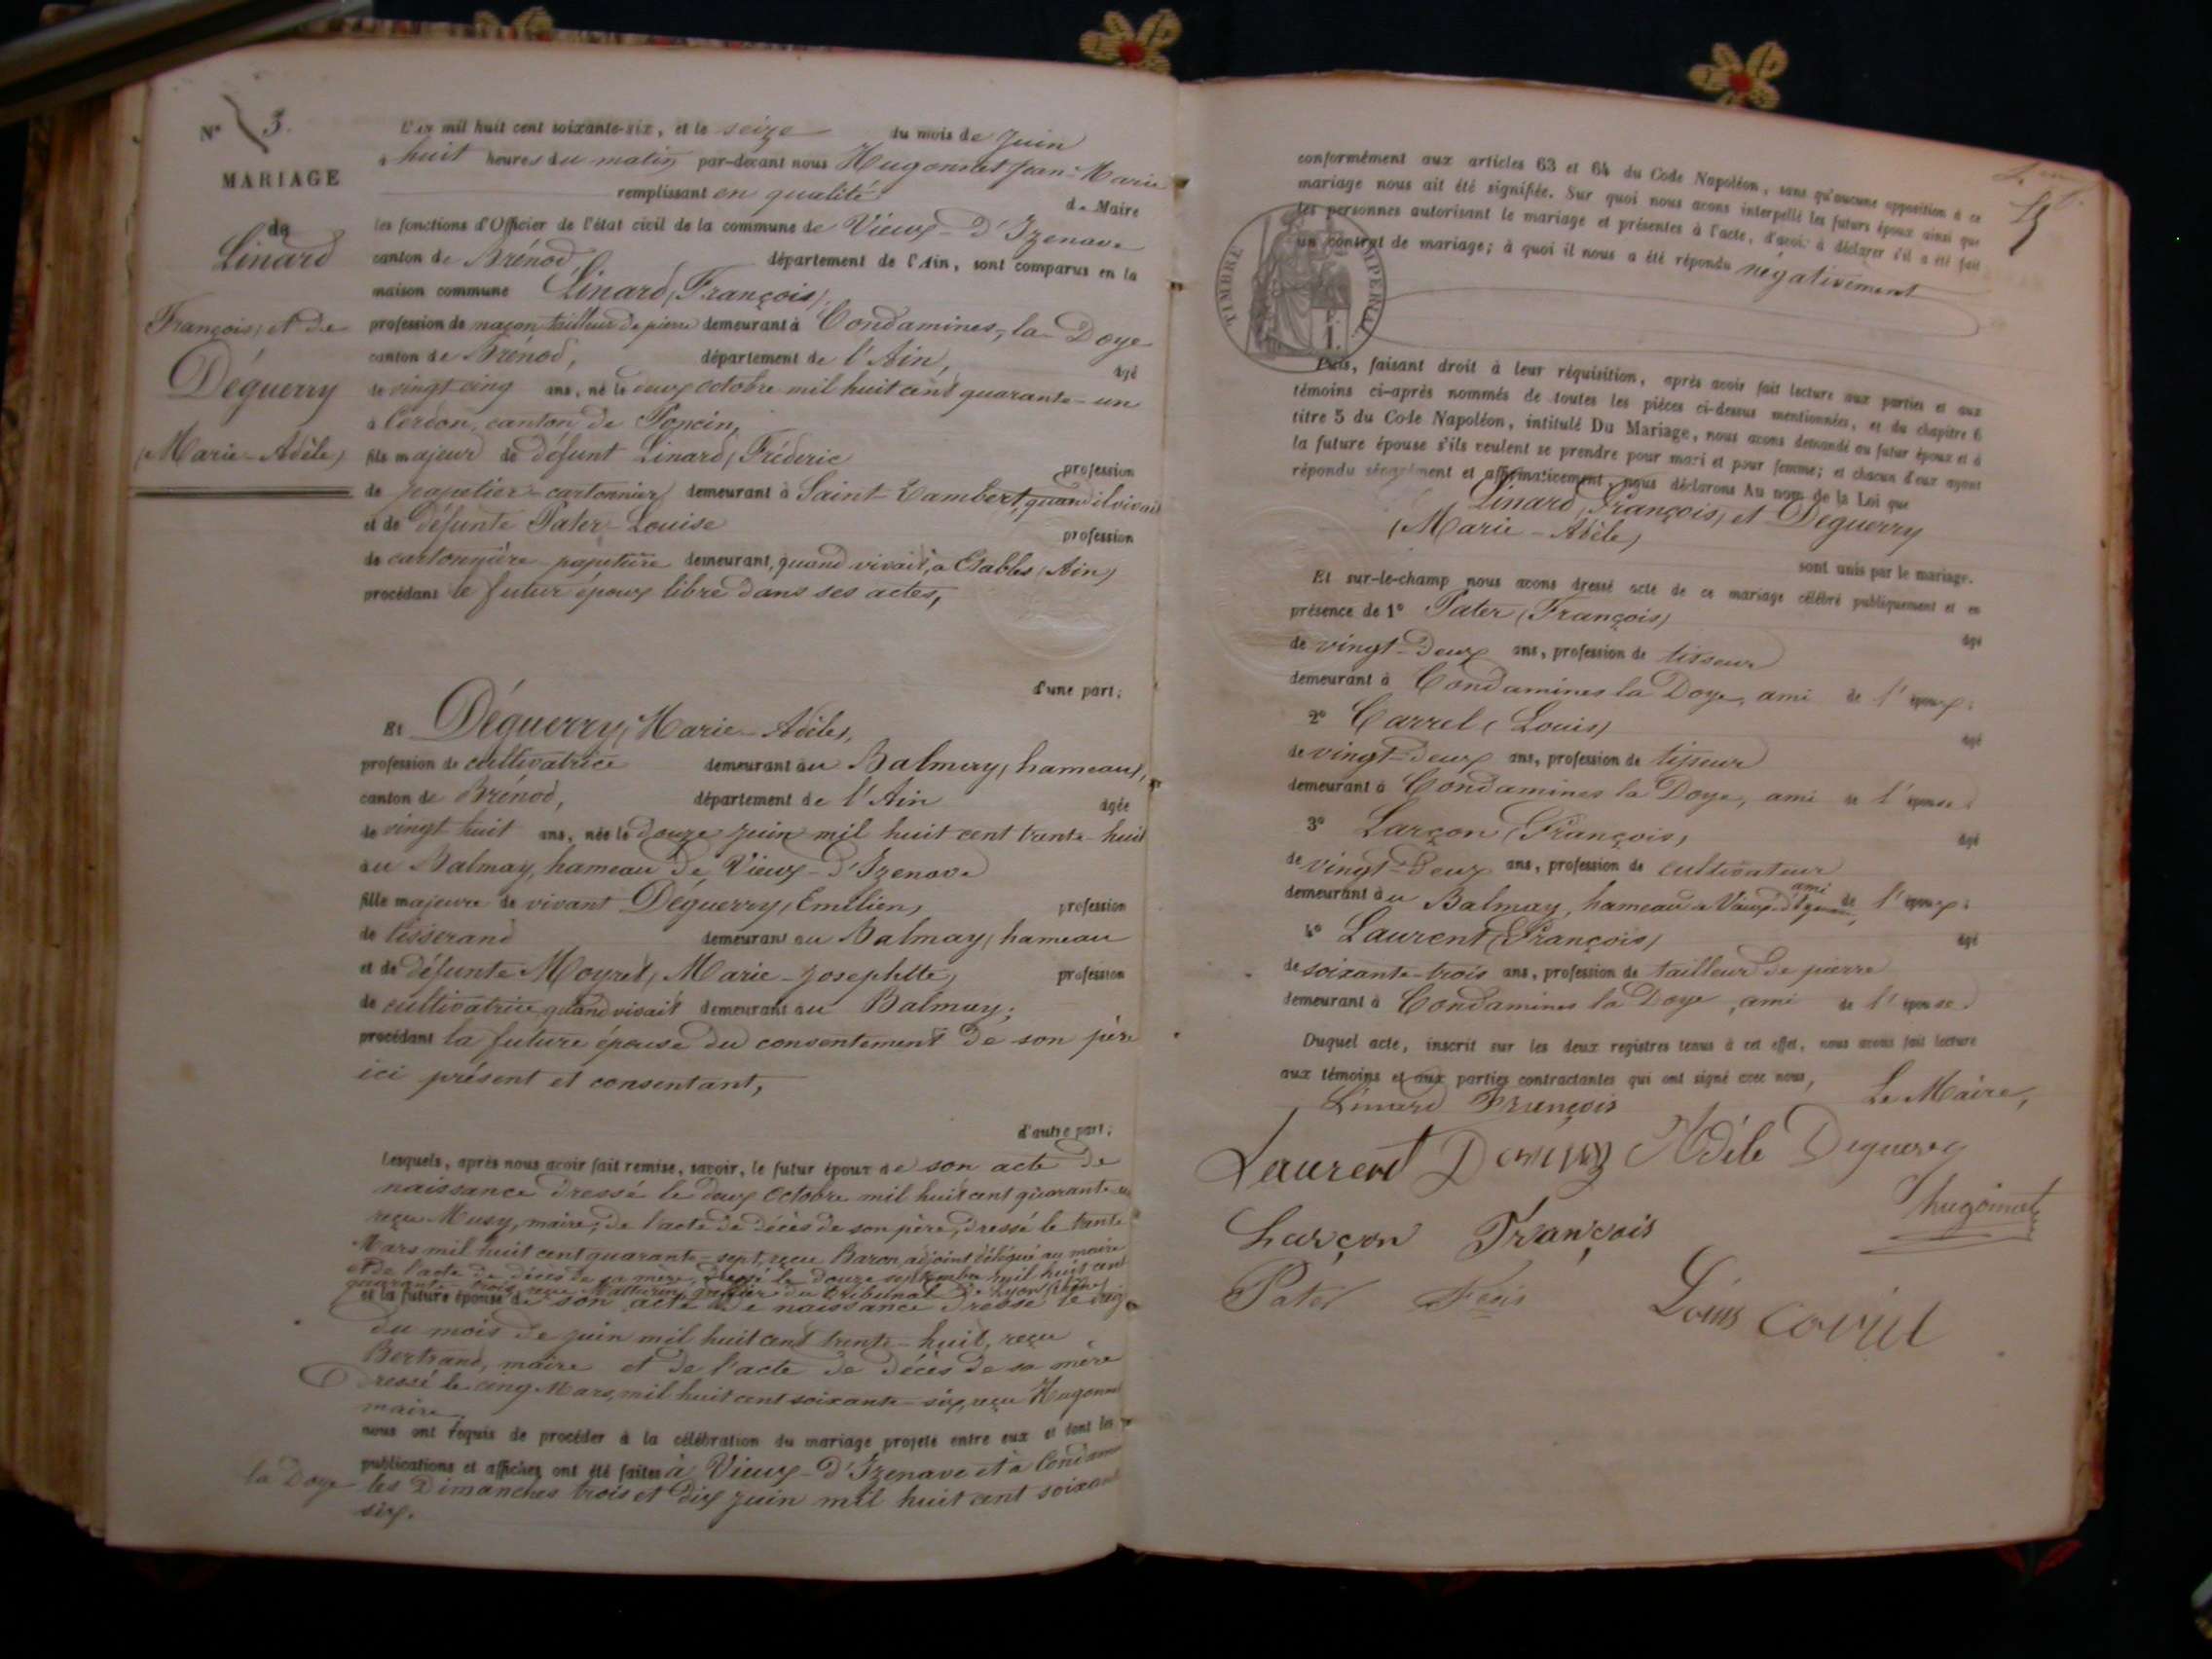 N° 3.
MARIAGE
de
Linard
François, et de
Déguerry
(Marie-Adèle)
L'an mil huit cent soixante-six, et le seize du mois de Juin
à huit heures du matin par-devant nous Hugonnet Jean-Marie
remplissant en qualité de Maire
les fonctions d'Officier de l'état civil de la commune de Vieux-d'Izenave
canton de Brénod département de l'Ain, sont comparus en la
maison commune Linard (François),
profession de maçon tailleur de pierre demeurant à Condamines-la-Doye
canton de Brénod, département de l'Ain, âgé
de vingt cinq ans, né le deux octobre mil huit cent quarante-un
à Cerdon, canton de Poncin,
fils majeur de défunt Linard, Fréderic profession
de papetier-cartonnier demeurant à Saint-Rambert, quand il vivait
et de défunte Pater Louise profession
de cartonnière papetière demeurant, quand vivait, à Etables (Ain)
procédant le futur époux libre dans ses actes,
d'une part;
Et Déguerry, Marie-Adèle,
profession de cultivatrice demeurant au Balmay, hameau,
canton de Brénod, département de l'Ain âgée
de vingt huit ans, née le douze juin mil huit cent trente-huit
au Balmay, hameau de Vieux-d'Izenave
fille majeure de vivant Déguerry, Emilien, profession
de tisserand demeurant au Balmay, hameau
et de défunte Moyret, Marie-Josephtte, profession
de cultivatrice quand vivait demeurant au Balmay;
procédant la future épouse du consentement de son père
ici présent et consentant,
d'autre part;
Lesquels, après nous avoir fait remise, savoir, le futur époux de son acte de
naissance dressé le deux octobre mil huit cent quarante-un
reçu Musy, maire, de l'acte de décès de son père, dressé le trente
Mars mil huit cent quarante-sept, reçu Baron adjoint délégué au maire
et de l'acte de décès de sa mère, dressé le douze septembre mil huit cent
quarante-trois, reçu greffier du tribunal de Lyon
et la future épouse de son acte de naissance dressé le
du mois de juin mil huit cent trente-huit, reçu
Bertrand, maire et de l'acte de décès de sa mère
dressé le cinq Mars, mil huit cent soixante-six, reçu Hugonnet
maire
nous ont requis de procéder à la célébration du mariage projeté entre eux et dont les
publications et affiches ont été faites à Vieux-d'Izenave et à Condamines
la Doye les Dimanches trois et dix juin mil huit cent soixante
six.
conformément aux articles 63 et 64 du Code Napoléon, sans qu'aucune opposition à ce
mariage nous ait été signifiée. Sur quoi nous avons interpellé les futurs époux ainsi que
les personnes autorisant le mariage et présentes à l'acte, d'avoir à déclarer s'il a été fait
un contrat de mariage; à quoi il nous a été répondu négativement
TIMBRE IMPÉRIAL
Puis, faisant droit à leur réquisition, après avoir fait lecture aux parties et aux
témoins ci-après nommés de toutes les pièces ci-dessus mentionnées, et du chapitre 6
titre 5 du Code Napoléon, intitulé Du Mariage, nous avons demandé au futur époux et à
la future épouse s'ils veulent se prendre pour mari et pour femme; et chacun d'eux ayant
répondu séparément et affirmativement, nous déclarons Au nom de la Loi que
Linard, François, et Déguerry
(Marie-Adèle)
sont unis par le mariage.
Et sur-le-champ nous avons dressé acte de ce mariage célébré publiquement et en
présence de 1° Pater (François) âgé
de vingt-deux ans, profession de tisseur
demeurant à Condamines la Doye, ami de l'époux;
2° Carrel (Louis) âgé
de vingt-deux ans, profession de tisseur
demeurant à Condamines la Doye, ami de l'épouse;
3° Larçon (François, âgé
de vingt-deux ans, profession de cultivateur
demeurant au Balmay, hameau de Vieux-d'Izenave, ami de l'époux;
4° Laurent (François) âgé
de soixante-trois ans, profession de tailleur de pierre
demeurant à Condamines la Doye, ami de l'épouse.
Duquel acte, inscrit sur les deux registres tenus à cet effet, nous avons fait lecture
aux témoins et aux parties contractantes qui ont signé avec nous,
Linard François Le Maire,
Laurent Adéle Deguerry
Larçon François Jhugonnet
Pater Louis